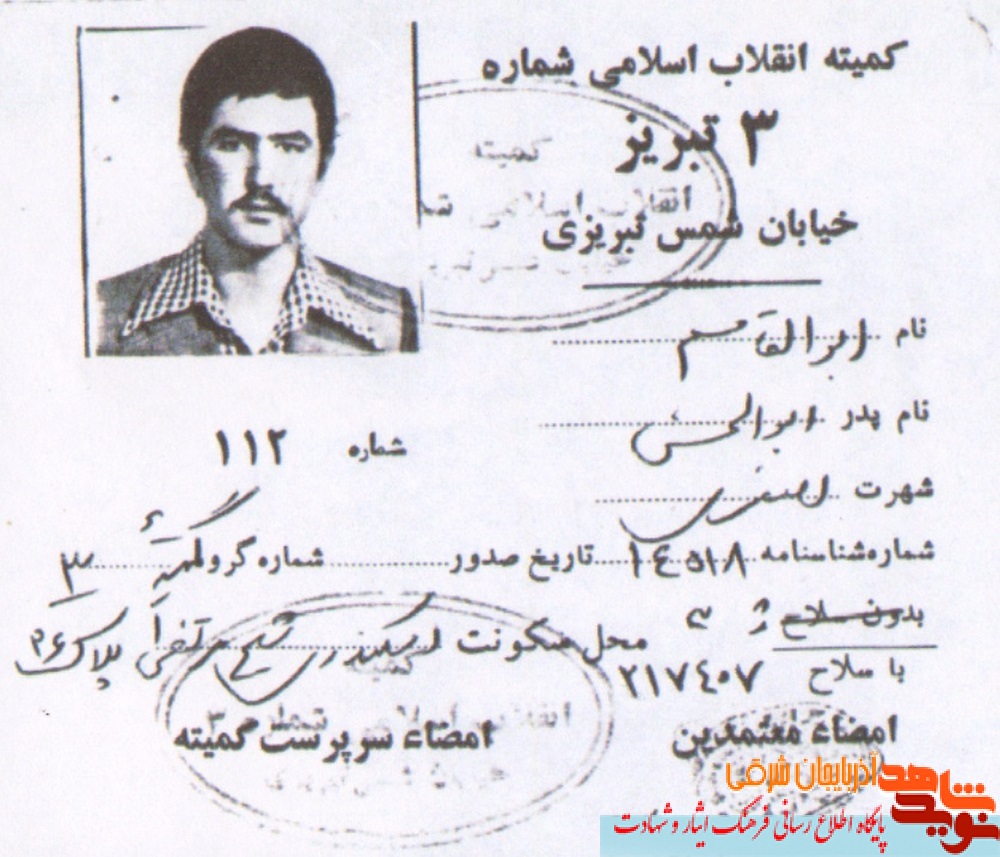 کمیته انقلاب اسلامی شماره
۳ تبریز
خیابان شمس تبریزی
کمیته
انقلاب اسلامی
نام ابوالقاسم
نام پدر ابوالحسن
شهرت
شماره ۱۱۲
شماره شناسنامه ۱۴۵۱۸ تاریخ صدور شماره گروه کمیته ۳
بدون سلاح ژ ۳
محل سکونت پلاک ۳۶
با سلاح ۲۱۷۴۰۷
امضاء معتمدین
امضاء سرپرست کمیته
نوید شاهد
آذربایجان شرقی
پایگاه اطلاع رسانی فرهنگ ایثار و شهادت